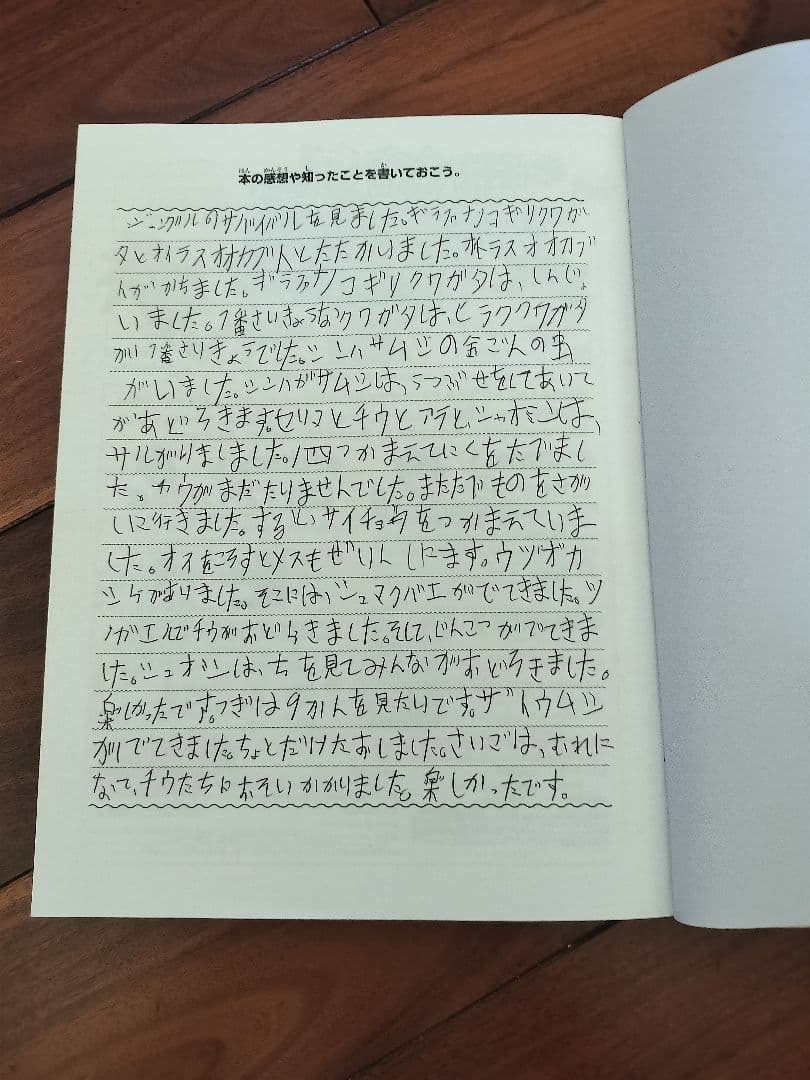 本の感想や知ったことを書いておこう。
ジャングルのサバイバルを見ました。ギラファノコギリクワガ
タとオオトラスオオカブトとたたかいました。アトラスオオカブ
トがかちました。ギラファノコギリクワガタは、しんじゃ
いました。1番さいきょうなクワガタは、ヒラタクワガタ
が1番さいきょうでした。シンハサムシの金ごんの虫
がいました。シンハがサムシは、うつぶせをしておいて
があどろきます。セリマとチウとアラと、シャオミンは、
サルがりましました。1四つかまえてにくをたべまし
た。カウがまだたりませんでした。またたべものをさが
しに行きました。するどいサイチョウをつかまえていま
した。オスをころすとメスもぜいいんしにます。ウツボカ
シケがありました。そこには、シュマクバエがでてきました。ツ
ノガエルでチウがおどろきました。そして、じんこつがでてきま
した。シュオシンは、ちを見てみんながおどろきました。
楽しかったです。つぎは9かんを見たいです。ザトウムシ
がでてきました。ちょとだけたおしました。さいごは、むれに
なって、チウたちにおそいかかりました。楽しかったです。